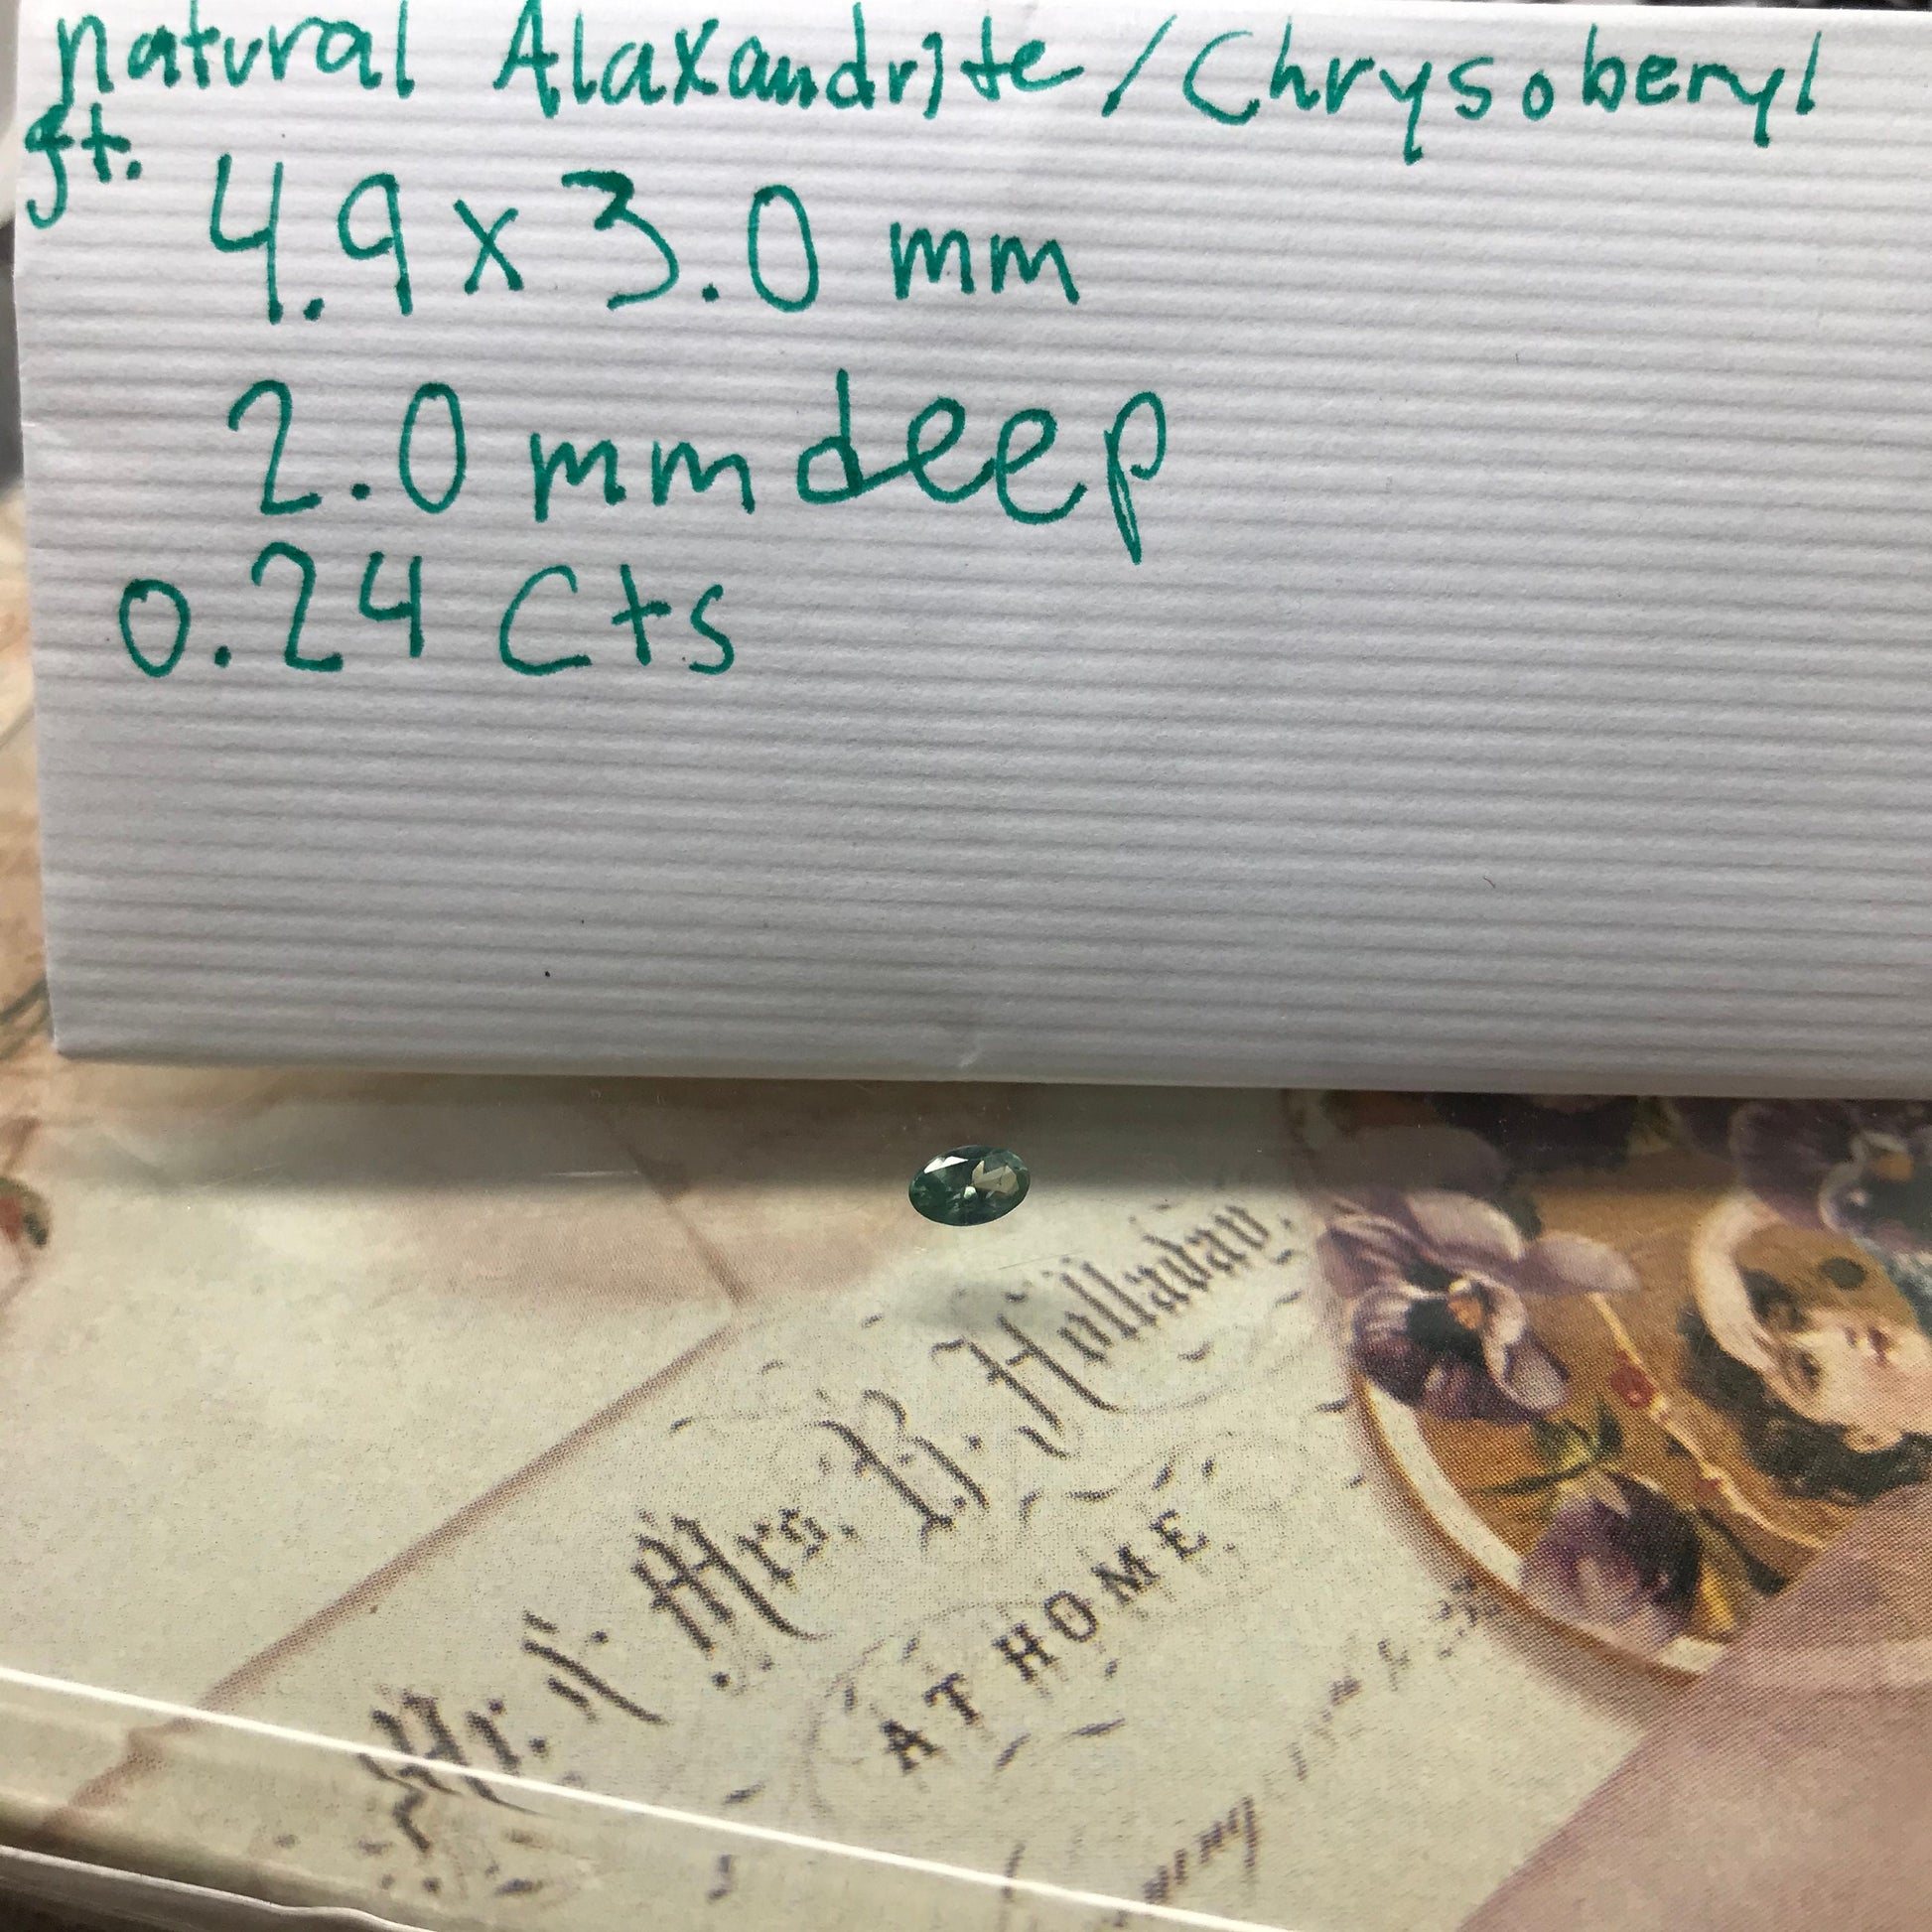 natural Alaxandrite/Chrysoberyl
ft. 4.9 x 3.0 mm
2.0 mm deep
0.24 Cts
Mr. & Mrs. B. Holladay,
AT HOME